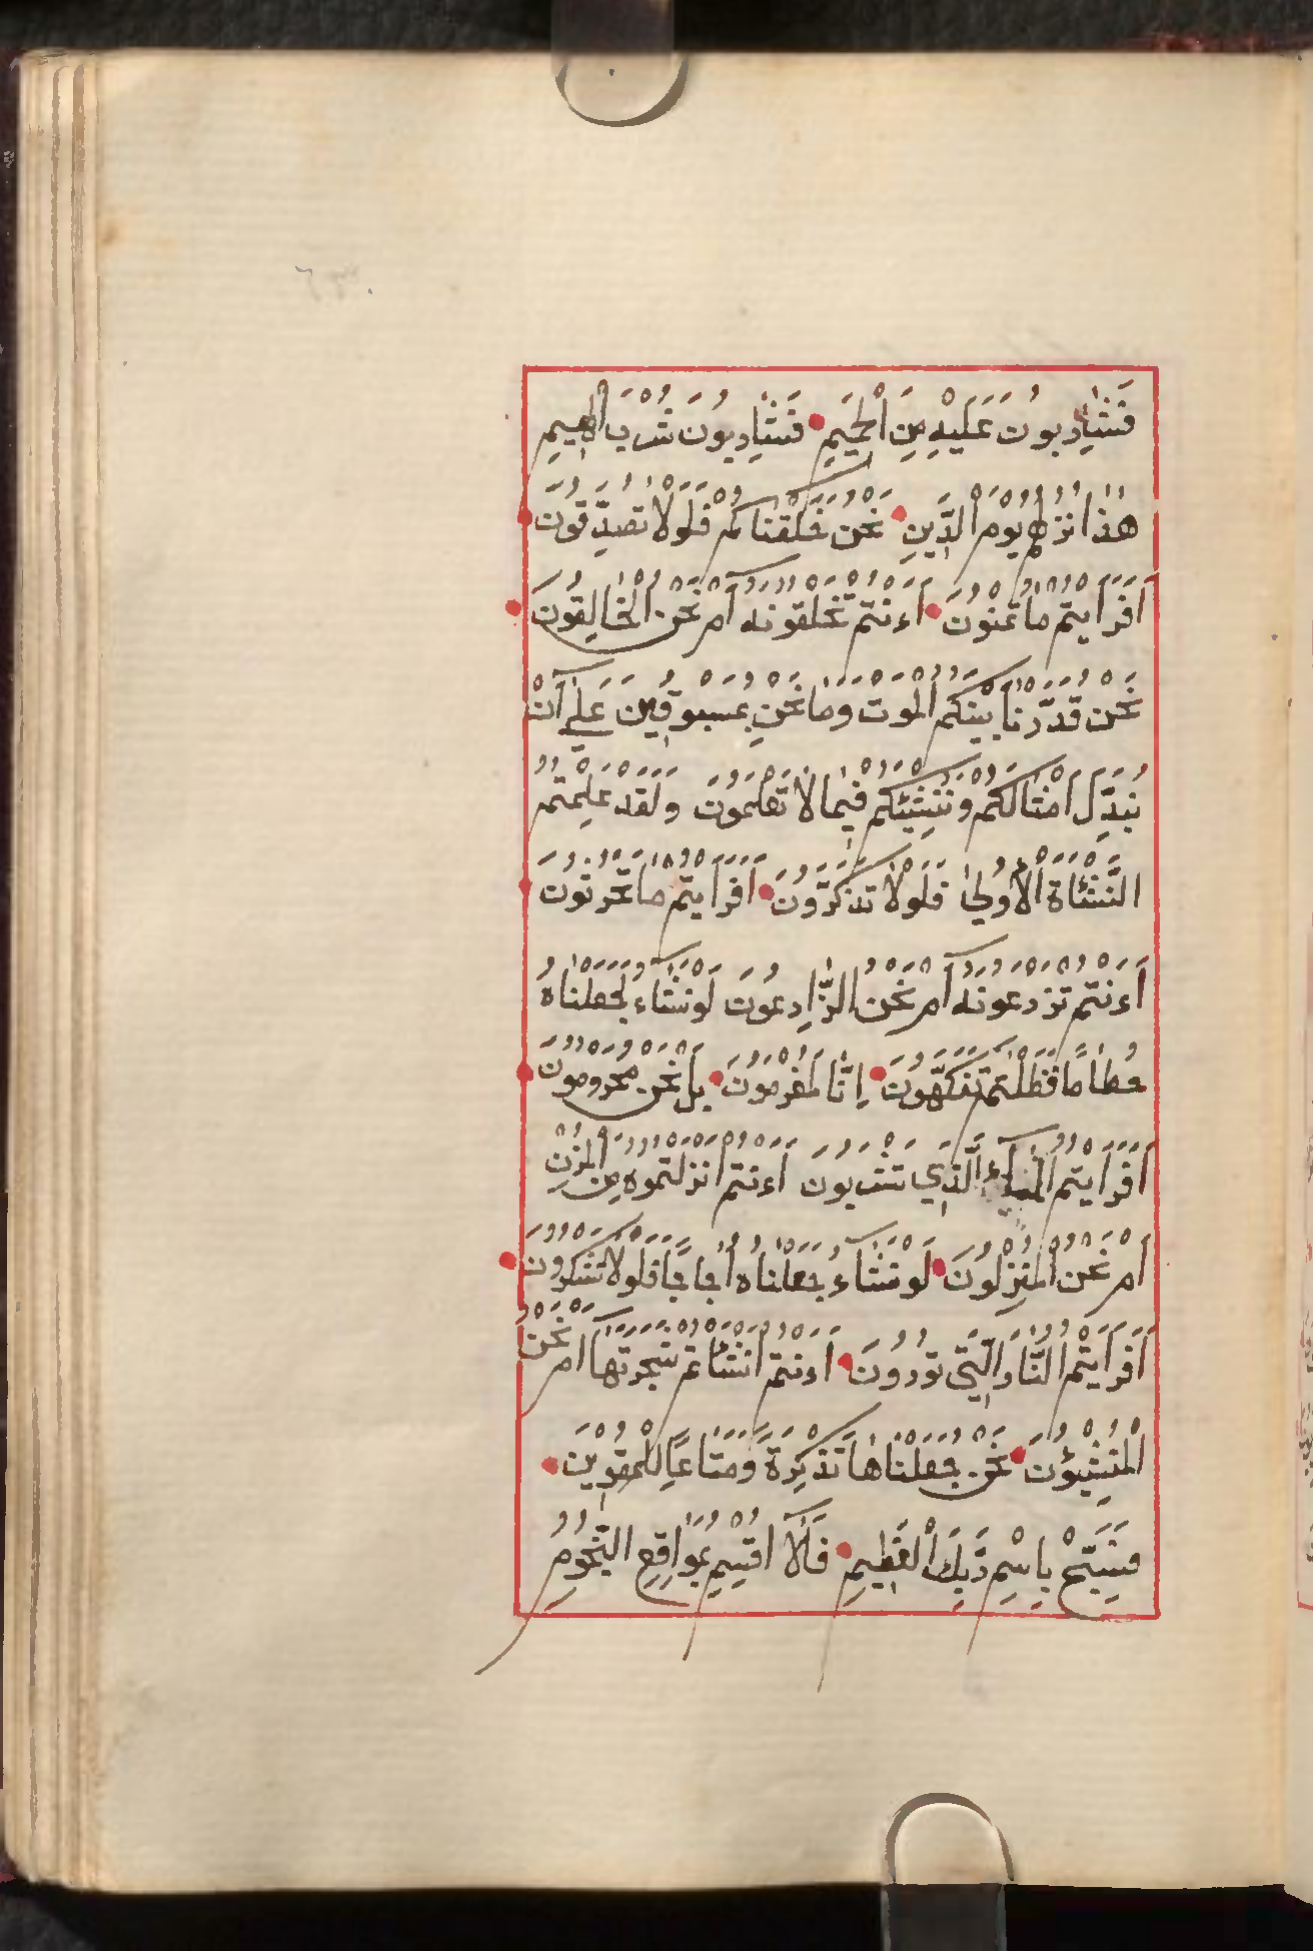 فَشَارِبُونَ عَلَيْهِ مِنَ الْحَمِيمِ فَشَارِبُونَ شُرْبَ الْهِيمِ
هٰذَا نُزُلُهُمْ يَوْمَ الدِّينِ نَحْنُ خَلَقْنَاكُمْ فَلَوْلَا تُصَدِّقُونَ
اَفَرَاَيْتُمْ مَا تُمْنُونَ ءَاَنْتُمْ تَخْلُقُونَهُ اَمْ نَحْنُ الْخَالِقُونَ
نَحْنُ قَدَّرْنَا بَيْنَكُمُ الْمَوْتَ وَمَا نَحْنُ بِمَسْبُوقِينَ عَلٰى اَنْ
نُبَدِّلَ اَمْثَالَكُمْ وَنُنْشِئَكُمْ فِيمَا لَا تَعْلَمُونَ وَلَقَدْ عَلِمْتُمُ
النَّشْاَةَ الْاُولٰى فَلَوْلَا تَذَكَّرُونَ اَفَرَاَيْتُمْ مَا تَحْرُثُونَ
ءَاَنْتُمْ تَزْرَعُونَهُ اَمْ نَحْنُ الزَّارِعُونَ لَوْ نَشَاءُ لَجَعَلْنَاهُ
حُطَامًا فَظَلْتُمْ تَفَكَّهُونَ اِنَّا لَمُغْرَمُونَ بَلْ نَحْنُ مَحْرُومُونَ
اَفَرَاَيْتُمُ الْمَاءَ الَّذِي تَشْرَبُونَ ءَاَنْتُمْ اَنْزَلْتُمُوهُ مِنَ الْمُزْنِ
اَمْ نَحْنُ الْمُنْزِلُونَ لَوْ نَشَاءُ جَعَلْنَاهُ اُجَاجًا فَلَوْلَا تَشْكُرُونَ
اَفَرَاَيْتُمُ النَّارَ الَّتِي تُورُونَ ءَاَنْتُمْ اَنْشَاْتُمْ شَجَرَتَهَا اَمْ نَحْنُ
الْمُنْشِئُونَ نَحْنُ جَعَلْنَاهَا تَذْكِرَةً وَمَتَاعًا لِلْمُقْوِينَ
فَسَبِّحْ بِاسْمِ رَبِّكَ الْعَظِيمِ فَلَا اُقْسِمُ بِمَوَاقِعِ النُّجُومِ